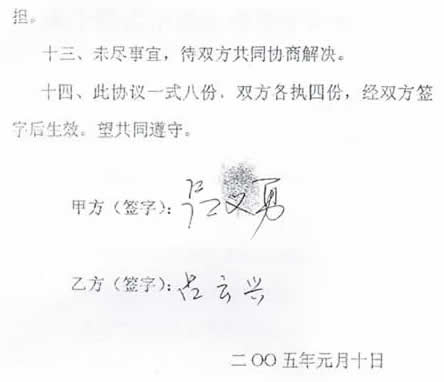 担。
十三、未尽事宜，待双方共同协商解决。
十四、此协议一式八份．双方各执四份，经双方签
字后生效。望共同遵守。
甲方（签字）：吕义勇
乙方（签字）：占云兴
二〇〇五年元月十日